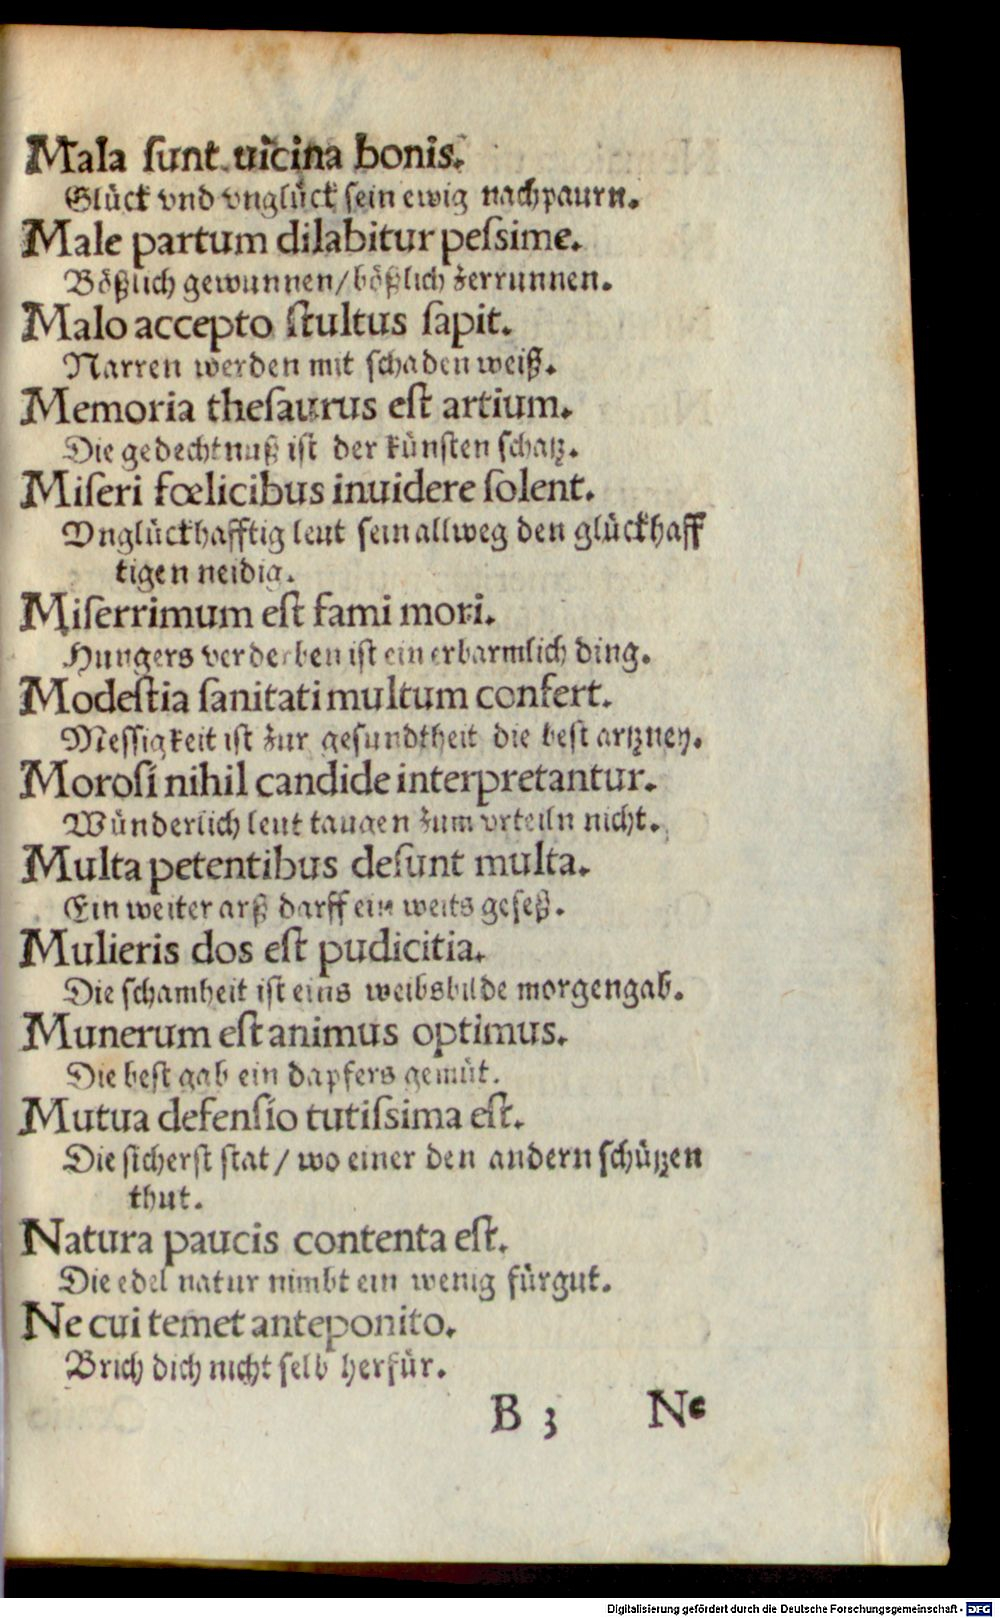 Mala ſunt uicina bonis.
Glück vnd vnglück ſein ewig nachpaurn.
Male partum dilabitur peſsime.
Bößlich gewunnen/bößlich zerrunnen.
Malo accepto ſtultus ſapit.
Narren werden mit ſchaden weiß.
Memoria theſaurus eſt artium.
Die gedechtnuß iſt der künſten ſchatz.
Miſeri fœlicibus inuidere ſolent.
Vnglückhafftig leut ſein allweg den glückhaff
tigen neidig.
Miſerrimum eſt fami mori.
Hungers verderben iſt ein erbarmlich ding.
Modeſtia ſanitati multum confert.
Meſſigkeit iſt zur geſundtheit die beſt artzney.
Moroſi nihil candide interpretantur.
Wünderlich leut taugen zum vrteiln nicht.
Multa petentibus deſunt multa.
Ein weiter arß darff ein weits geſeß.
Mulieris dos eſt pudicitia.
Die ſchamheit iſt eins weibsbilde morgengab.
Munerum eſt animus optimus.
Die beſt gab ein dapfers gemüt.
Mutua defenſio tutiſsima eſt.
Die ſicherſt ſtat / wo einer den andern ſchützen
thut.
Natura paucis contenta eſt.
Die edel natur nimbt ein wenig fürgut.
Ne cui temet anteponito.
Brich dich nicht ſelb herfür.
B 3 Ne
Digitalisierung gefördert durch die Deutsche Forschungsgemeinschaft - DFG